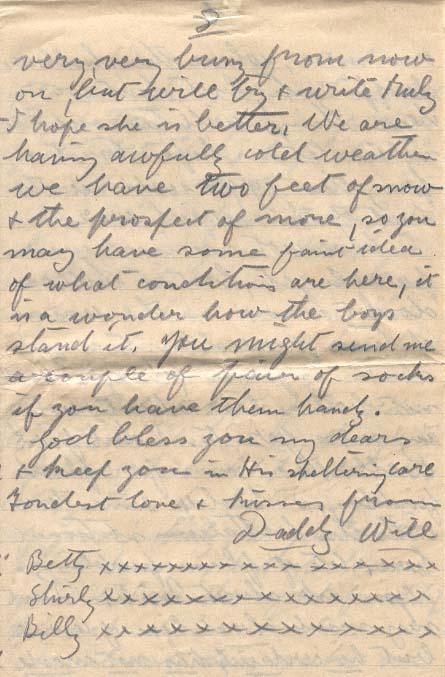 8
very very busy from now
on, but will try & write truly
I hope she is better. We are
having awfully cold weather
we have two feet of snow
& the prospect of more, so you
may have some faint idea
of what conditions are here, it
is a wonder how the boys
stand it. You might send me
a couple of pair of socks
if you have them handy.
God bless you my dears
& keep you in His sheltering care
Fondest love & kisses from
Daddy Will
Betty x x x x x x x x x x x x x x x x x
Shirly x x x x x x x x x x x x x x x
Billy x x x x x x x x x x x x x x x